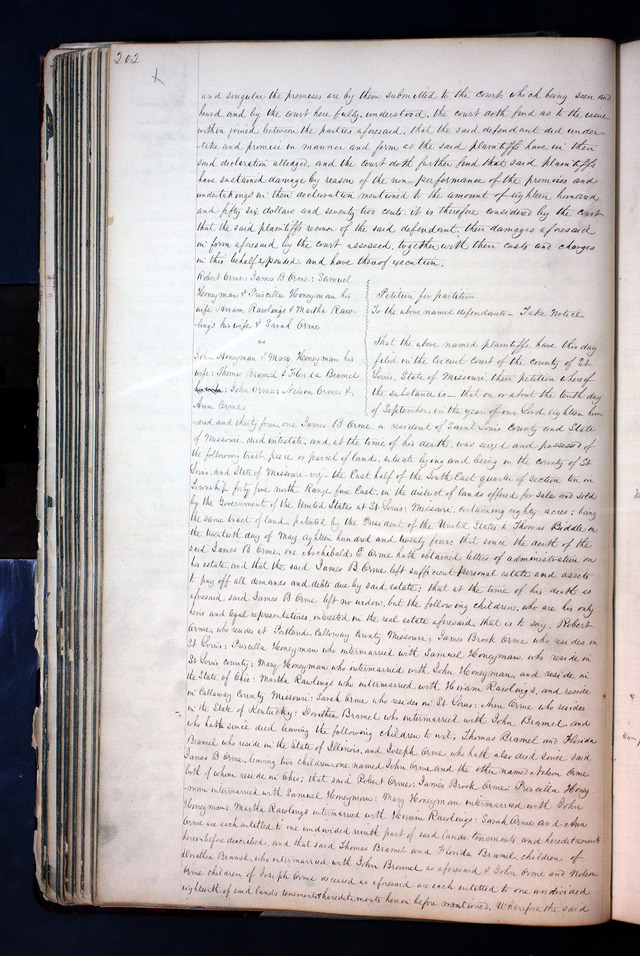 202
and singular the premises are by them submitted to the court which being seen and
heard and by the court here fully understood, the court doth find as to the issue
within joined between the parties aforesaid, that the said defendant did under-
-take and promise in manner and form as the said plaintiffs have in their
said declaration alleged, and the court doth further find that said plaintiffs
have sustained damage by reason of the non performance of the promises and
undertakings in their declaration mentioned to the amount of eighteen hundred
and fifty six dollars and seventy two cents. it is therefore considered by the court
that the said plaintiffs recover of the said defendant, their damages aforesaid
in form aforesaid by the court assessed, together with their costs and charges
in this behalf expended, and have thereof execution.
Robert Orme, James B Orme; Samuel
Honeyman & Priscilla Honeyman his
wife Hiram Rawlings & Martha Raw-
lings his wife & Sarah Orme
vs
John Honeyman & Mary Honeyman his
wife; Thomas Bramel & Florida Bramel
John Orme; Nelson Orme &
Ann Orme
Petition for partition
To the above named defendants — Take Notice
That the above named plaintiffs have this day
filed in the Circuit Court of the county of St
Louis, State of Missouri their petition whereof
the substance is — that on or about the tenth day
of September, in the year of our Lord eighteen hun
-dred and thirty four, one James B Orme a resident of Saint Louis county and State
of Missouri, died intestate, and at the time of his death was seized and possessed of
the following tract, piece or parcel of land, situate lying and being in the county of St
Louis and State of Missouri viz— the East half of the South East quarter of section ten in
Township forty five north Range five East, in the district of lands offered for sale and sold
by the Government of the United States at St Louis; Missouri, containing eighty acres; being
the same tract of land patented by the President of the United States to Thomas Biddle on
the twentieth day of May eighteen hundred and twenty four; that since the death of the
said James B Orme, one Archibald E Orme hath obtained letters of administration on
his estate, and that the said James B Orme left sufficient personal estate and assets
to pay off all demands and debts due by said estate; that at the time of his death as
aforesaid said James B Orme left no widow, but the following children, who are his only
heirs and legal representatives, interested in the real estate aforesaid, that is to say, Robert
Orme, who resides at Portland, Calloway County Missouri; James Brook Orme who resides in
St Louis; Priscilla Honeyman who intermarried with Samuel Honeyman, who reside in
St Louis county; Mary Honeyman who intermarried with John Honeyman, and reside in
the State of Ohio; Martha Rawlings who intermarried with Hiram Rawlings, and reside
in Calloway County Missouri; Sarah Orme who resides in St Louis; Ann Orme who resides
in the State of Kentucky; Dorothea Bramel who intermarried with John Bramel, and
who hath since died leaving the following children to wit, Thomas Bramel and Florida
Bramel who reside in the State of Illinois, and Joseph Orme who hath also died since said
James B Orme, leaving two children, one named John Orme and the other named Nelson Orme
both of whom reside in Ohio; that said Robert Orme; James Brook Orme; Priscilla Honey
-man intermarried with Samuel Honeyman; Mary Honeyman intermarried with John
Honeyman; Martha Rawlings intermarried with Hiram Rawlings; Sarah Orme and Ann
Orme are each entitled to one undivided ninth part of said lands, tenements and hereditaments
hereinbefore described, and that said Thomas Bramel and Florida Bramel, children of
Dorothea Bramel, who intermarried with John Bramel as aforesaid & John Orme and Nelson
Orme children of Joseph Orme deceased as aforesaid are each entitled to one undivided
eighteenth of said lands tenements & hereditaments herein before mentioned. Wherefore the said